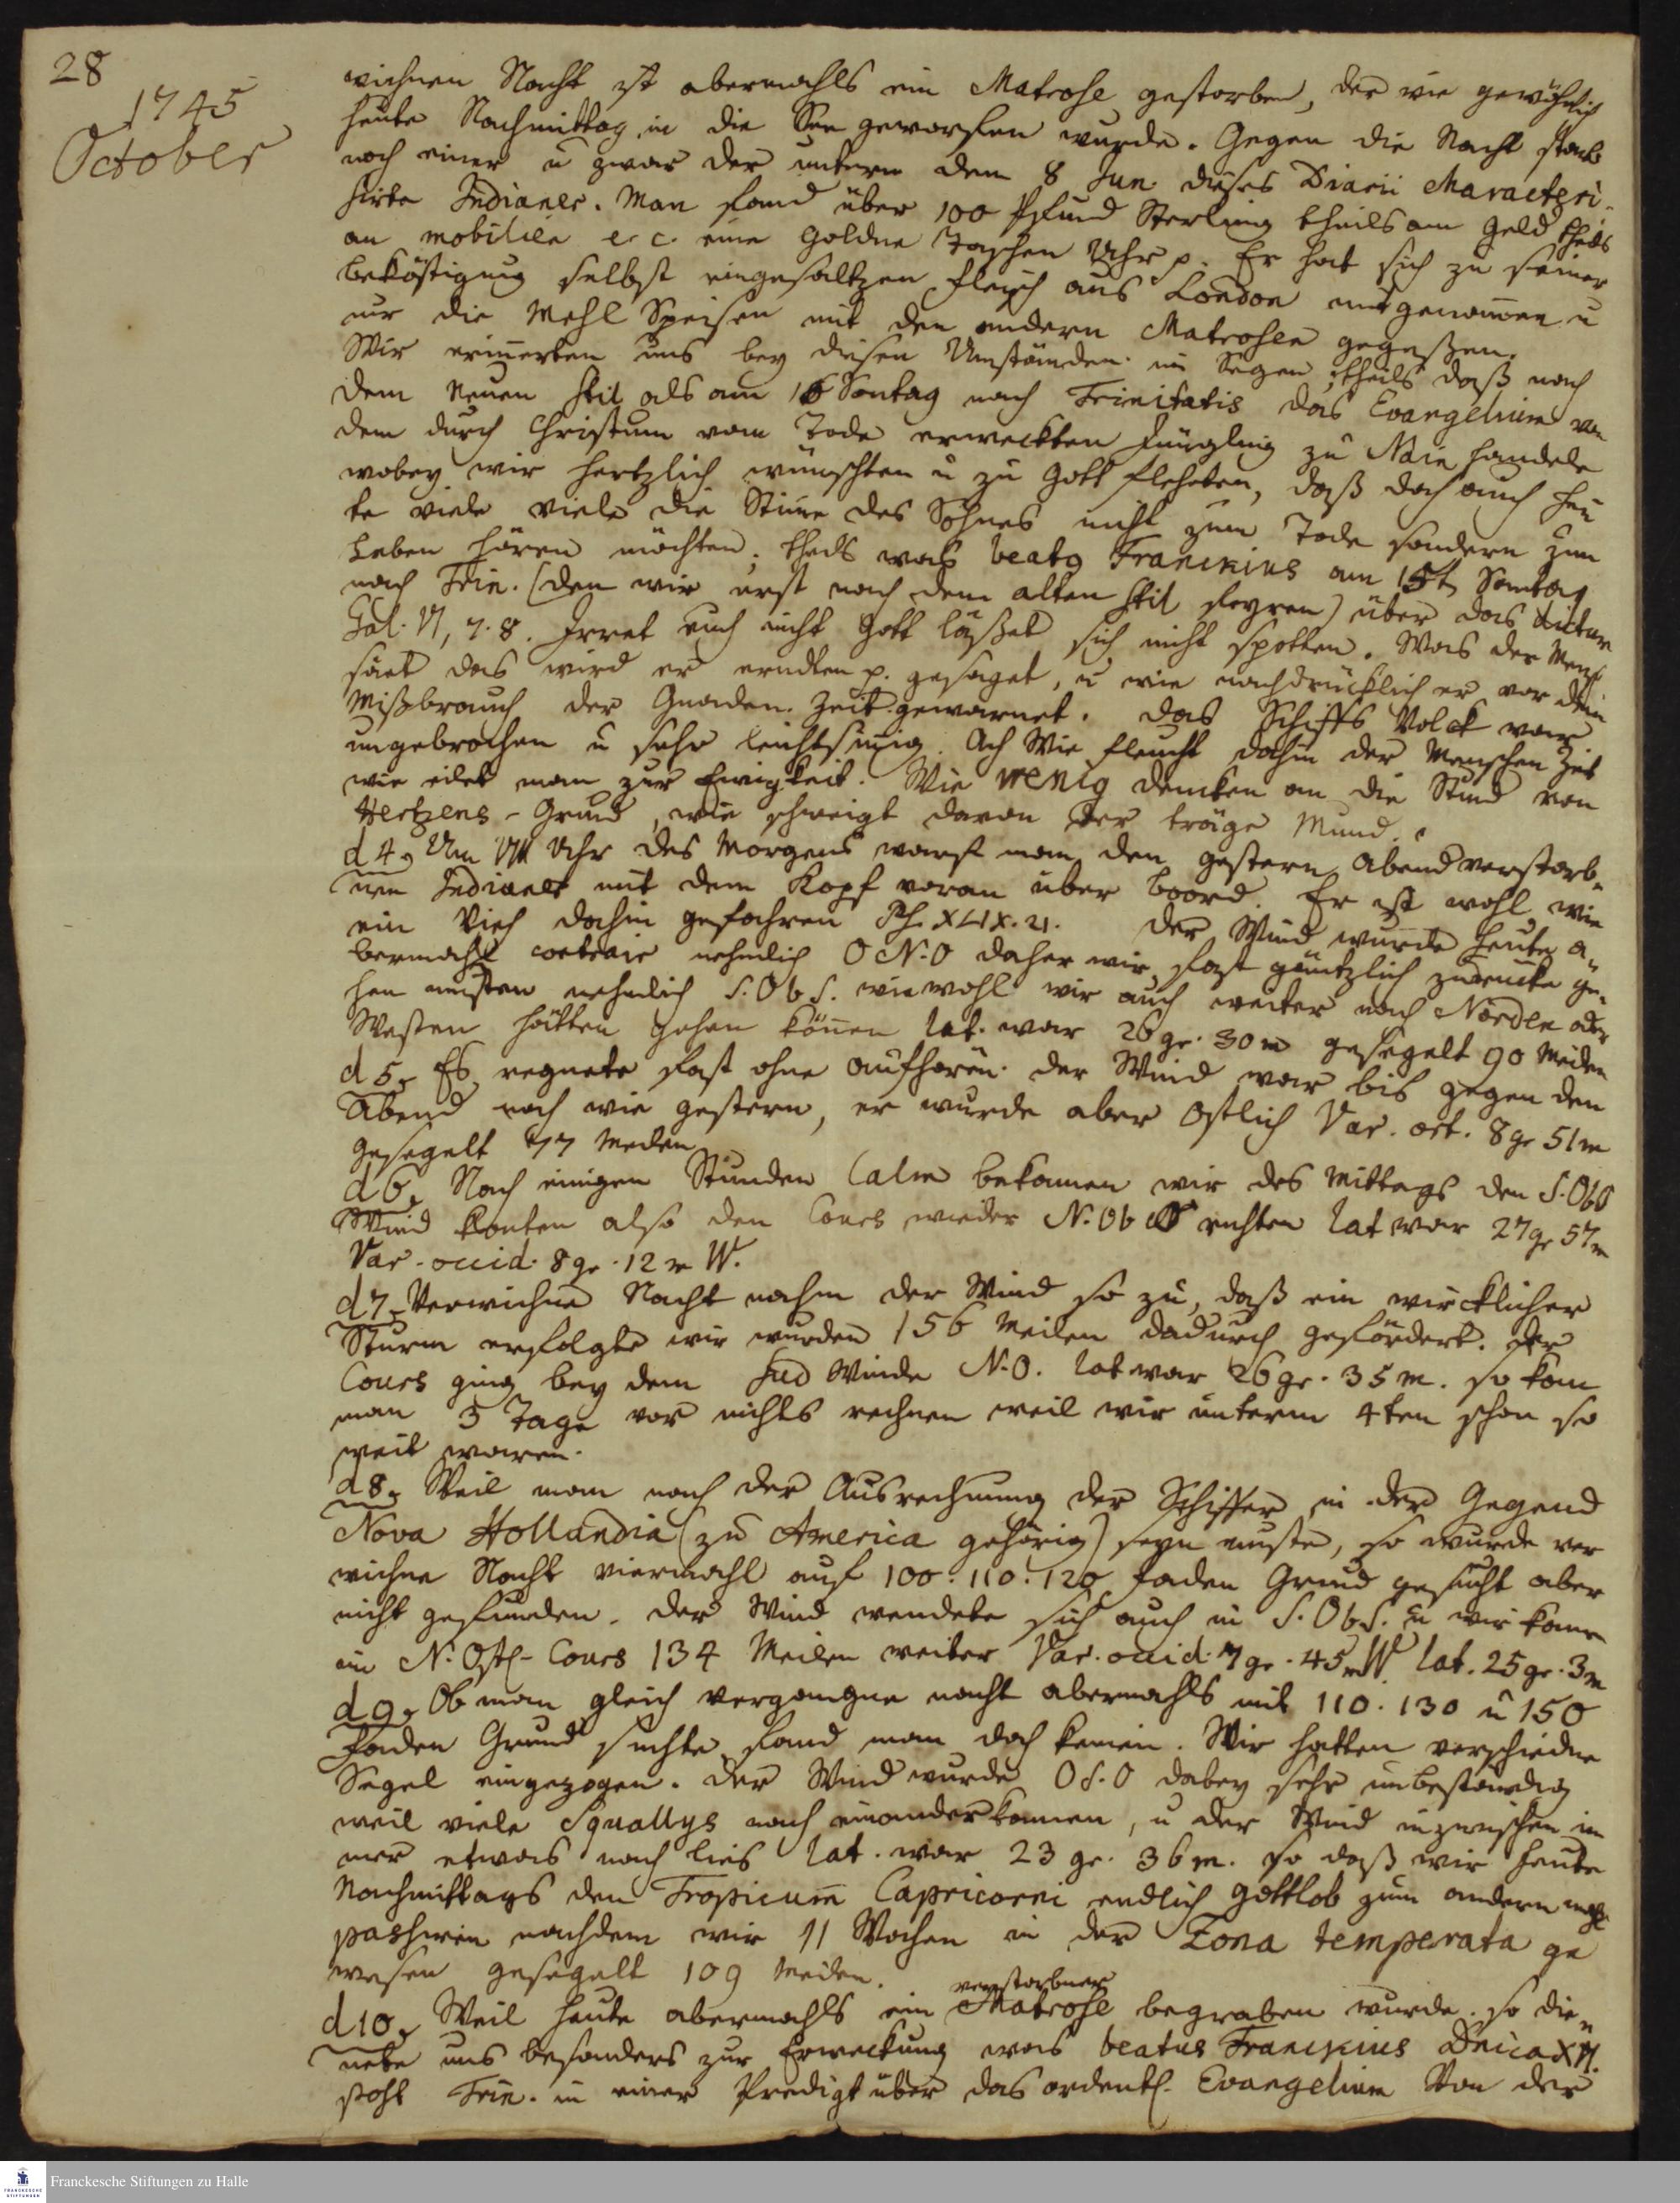 28
1745
October
wichnen Nacht ist abermahls ein Matrose gestorben, der wie gewöhnlich
heute Nachmittag in die See geworfen wurde. Gegen die Nacht starb
noch einer u zwar der unterm dem 8 Jun. dieses Diarii characteri-
sirte Indianer. Man fand über 100 Pfund Sterling theils an Geld theils
an mobilien e.c. eine goldne Taschen Uhr p. Er hat sich zu seiner
beköstigung selbst eingesaltzen fleisch aus London mitgenom̄en u
nur die Mehl Speisen mit den andern Matrosen gegeßen.
Wir erinnerten uns bey diesen Umständen im Segen theils daß nach
dem neuen stil als am 16 Sontag nach Trinitatis das Evangelium von
dem durch Christum vom Tode erweckten Jüngling zu Nain handele
wobey wir hertzlich wünschten u zu Gott fleheten, daß doch auch heu
te viele viele die Stim̄e des Sohnes nicht zum Tode sondern zum
Leben hören möchten, theils was beatg Franckius am 15t Sontag
nach Trin. (den wir erst nach dem alten stil feyren) über das dictum
Gal. VI, 7.8. Irret euch nicht Gott läßet sich nicht spotten. Was der Mensch
säet das wird er erndten p. gesaget, u wie nachdrücklich er vor dem
Mißbrauch der Gnaden Zeit gewarnet. Das Schiffs Volck war
ungebrochen u sehr leichtsinnig. Ach Wie fleucht dahin der Menschen Zeit
wie eilet man zur Ewigkeit. Wie wenig dencken an die Stund von
Hertzens-Grund, wie schweigt davon der träge Mund.
d 4, Um Uhr des Morgens warf man den gestern Abend verstorb-
nen Indianer mit dem Kopf voran über boord. Er ist wohl wie
ein Vieh dahin gefahren Ps. XLIX.21. Der Wind wurde heute a-
bermahl contrair nehmlich O N.O daher wir fast gäntzlich zurücke ge-
hen musten nehmlich S.ObS. wiewohl wir auch weiter nach Norden oder
Westen hätten gehen kön̄en lat. war 26 gr. 30 m gesegelt 90 Meilen
d 5, Es regnete fast ohne aufhören. Der Wind war bis gegen den
Abend noch wie gestern, er wurde aber Ostlich Var. ort. 8 gr 51 m
gesegelt 77 Meilen
d 6, Nach einigen Stunden Calm bekamen wir des Mittags den S.ObO
Wind konten also den Cours wieder N.Ob richten lat war 27 gr 57 m
Var. occid. 8 gr. 12 m W.
d 7, Verwichne Nacht nahm der Wind so zu, daß ein wircklicher
Sturm erfolgte wir wurden 156 Meilen dadurch gefördert. der
Cours ging bey dem Sud Winde N.O. lat war 26 gr. 35 m. so kan
man 3 Tage vor nichts rechnen weil wir unterm 4ten schon so
weit waren.
d 8, Weil man nach der Ausrechnung der Schiffer in der Gegend
Nova Hollandia (zu America gehörig) seyn muste, so wurde ver
wichne Nacht viermahl auf 100. 110. 120 faden Grund gesucht aber
nicht gefunden. Der Wind wendete sich auch in S.ObS. u wir kamen
im N.Ostl. Cours 134 Meilen weiter Var. occid. 7 gr. 45 m W lat. 25 gr. 3 m
d 9, Ob man gleich vergangne nacht abermahls mit 110. 130 u 150
Faden Grund suchte, fand man doch keinen. Wir hatten verschiedne
Segel eingezogen. Der Wind wurde O S.O dabey sehr unbeständig
weil viele Squallys nach einander kamen, u der Wind inzwischen im
mer etwas nach lies lat. war 23 gr. 36 m. so daß wir heute
Nachmittags den Tropicum Capricorni endlich gottlob zum andern mahl
pashiren nachdem wir 11 Wochen in der Zona temperata ge
wesen gesegelt 109 Meilen.
d 10, Weil heute abermahls ein verstorbner Matrose begraben wurde. so die-
nete uns besonders zur Erweckung was beatus Franckius Dnica XVI.
post Trin. in einer Predigt über das ordentl. Evangelium Von der
Franckesche Stiftungen zu Halle